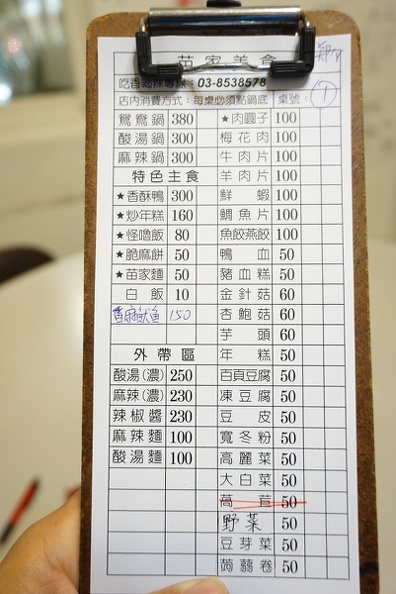 苗家美食
吃香喝辣專線：03-8538578
店內消費方式：每桌必須點鍋底 桌號：1
鴛鴦鍋 380 ★肉圓子 100
酸湯鍋 300 梅花肉 100
麻辣鍋 300 牛肉片 100
特色主食 羊肉片 100
★香酥鴨 300 鮮蝦 100
★炒年糕 160 鯛魚片 100
★怪嚕飯 80 魚餃燕餃 100
★脆麻餅 50 鴨血 50
★苗家麵 50 豬血糕 50
白飯 10 金針菇 60
150 杏鮑菇 60
芋頭 60
外帶區 年糕 50
酸湯(濃) 250 百頁豆腐 50
麻辣(濃) 230 凍豆腐 50
辣椒醬 230 豆皮 50
麻辣麵 100 寬冬粉 50
酸湯麵 100 高麗菜 50
大白菜 50
萵苣 50
野菜 50
豆芽菜 50
蒟蒻卷 50